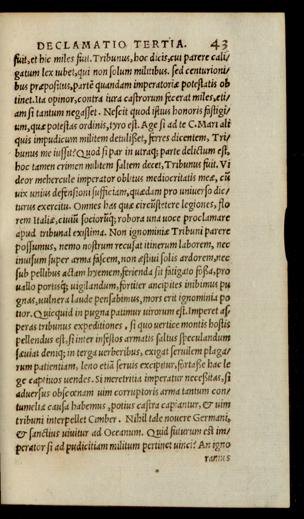 DECLAMATIO TERTIA. 43
fuit, et hic miles fuit. Tribunus, hoc dicis, cui parere cali/
gatum lex iubet, qui non solum militibus. sed centurioni/
bus præpositus, partē quandam imperatoriæ potestatis ob
tinet. Ita opinor, contra iura castrorum fecerat miles, eti/
am si tantum negasset. Nescit quod istius honoris fastigi/
um, quæ potestas ordinis, tyro est. Age si ad te C. Mari ali
quis impudicum militem detulisset, ferres dicentem, Tri/
bunus me iussit? Quod si par in utraq; parte delictum est,
hoc tamen crimen militem saltem decet, Tribunus fuit. Vi
deor mehercule imperator oblitus mediocritatis meæ, cū
uix unius defensioni sufficiam, quædam pro uniuerso dic/
turus exercitu. Omnes has quæ circūstetere legiones, flo
rem Italiæ, ciuiū sociorūq; robora una uoce proclamare
apud tribunal existima. Non ignominiæ Tribuni parere
possumus, nemo nostrum recusat itinerum laborem, nec
inuisum super arma fascem, non æstiui solis ardorem, nec
sub pellibus actam hyemem, ferienda sit fatigato fossa, pro
uallo porrusq; uigilandum, fortiter ancipites inibimus pu
gnas, uulnera laude pensabimus, mors erit ignominia po
tior. Quicquid in pugna patimur uirorum est. Imperet as
peras tribunus expeditiones, si quo uertice montis hostis
pellendus est, si inter infestos armatis saltus speculandum
sæuiat deniq; in terga uerberibus, exigat seruilem plaga/
rum patientiam, leno etiā seruis excipitur, fortasse hac le
ge captiuos uendes. Si meretritia imperatur necessitas, si
aduersus obscœnam uim corruptoris arma tantum con
tumelia causa habemus, potius castra capiantur, & uim
tribuni interpellet Cimber. Nihil tale nouere Germani,
& sanctius uiuitur ad Oceanum. Quid futurum est im/
perator si ad pudicitiam militum pertinet uinci? An igno
ramus